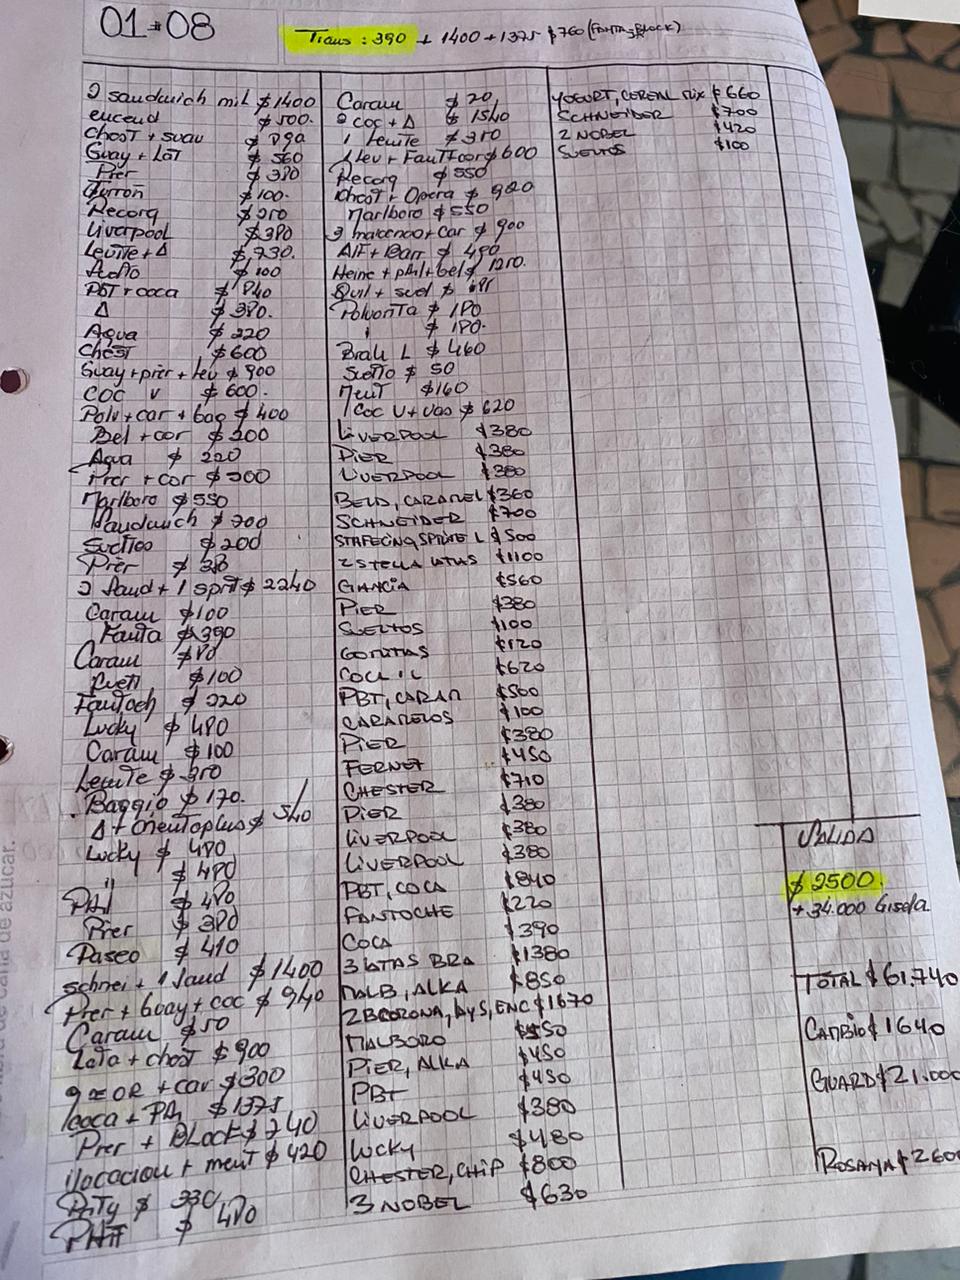 01-08
Trans: 390 + 1400 + 1375 $760 (FANTA, BLOCK)
2 sandwich mil $1400
encend $500.
Chest + suav $890
Guay + Lat $560
Pier $380
$100.
Recorg $350
Liverpool $380
Levite + Δ $730.
$100
PBT + coca $840
Δ $380.
Agua $220
Chest $600
Guay + pier + lev $900
COC V $600.
Polv + car + bag $400
Bel + cor $300
Agua $220
Pier + cor $
Marlboro $550
Sandwich $700
Sueltos $200
Pier $380
2 Sand + 1 sprit $2240
Caram $100
Fanta $390
Caram $80
$100
Fantoch $220
Lucky $480
Caram $100
Levite $350
Baggio $170.
Δ + mentoplus $540
Lucky $480
" $480
Phil $480
Pier $380
Paseo $410
schnei + 1 Sand $1400
Pier + Guay + coc $940
Caram $50
Lata + chest $900
+ car $300
1 coca + Ph $1375
Pier + Block $740
+ ment $420
PHTy $330
PHIT $480
Caram $20
2 coc + Δ $1540
1 Levite $350
1 lev + Fant $600
Recorg $550
Chest + Opera $920
Marlboro $550
+ car $900
Alf + Barr $490
Heine + phil + bel $1250.
Quil + suel $
Polvorita $180
" $180.
Brah L $460
Suelto $50
Ment $160
1 Coc V + vas $620
LIVERPOOL $380
PIER $380
LIVERPOOL $380
BELD, CARAMEL $360
SCHNEIDER $700
SPRITE L $500
2 STELLA LATAS $1100
GANCIA $560
PIER $380
SUELTOS $100
GOMITAS $120
COCA 1L $620
PBT, CARAM $500
CARAMELOS $100
PIER $380
FERNET $450
CHESTER $710
PIER $380
LIVERPOOL $380
LIVERPOOL $380
PBT, COCA $840
FANTOCHE $220
COCA $390
3 LATAS BRA $1380
MALB, ALKA $850
2B CORONA, AYS, ENC $1670
MALBORO $550
PIER, ALKA $450
PBT $450
LIVERPOOL $380
LUCKY $480
CHESTER, CHIP $800
3 NOBEL $630
YOGURT, CEREAL MIX $660
SCHNEIDER $700
2 NOBEL $420
SUELTOS $100
SALIDA
$2500.
+ 34.000 Gisela
TOTAL $61.740
CAMBIO $1640
GUARD $21.000
ROSANA $2600
de caña de azúcar.